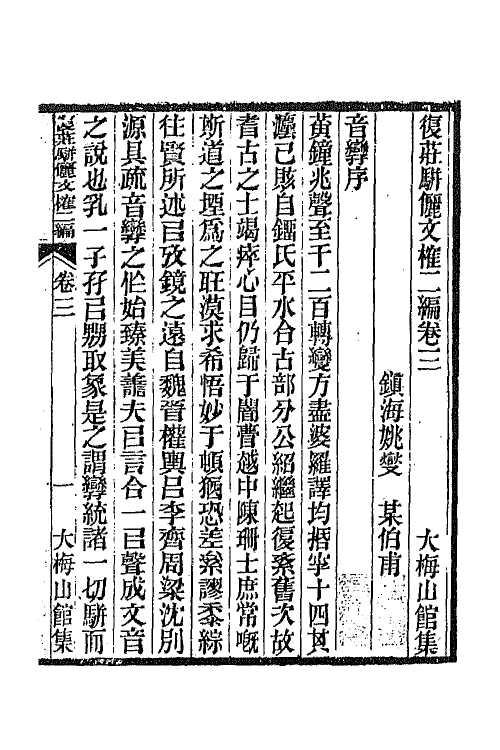 復莊駢儷文榷二編卷三　　　　大梅山館集
鎮海姚燮　某伯甫
音孿序
黃鐘兆聲至千二百轉變方盡婆羅譯均捂寧十四其
灋已賅自鐂氏平水合古部分公紹繼起復紊舊次故
耆古之士竭瘁心目仍歸于闇曹越中陳珊士庶常嘅
斯道之堙爲之旺漠求希悟妙于頓猶恐差案謬黍綜
往賢所述㠯攷鏡之遠自魏晉權輿呂李齊周梁沈別
源具疏音孿之恉始臻美譫夫㠯言合一㠯聲成文音
之說也乳一子孖㠯嬲取象是之謂孿統諸一切駢而
復莊駢儷文榷二編　卷三　一　大梅山館集